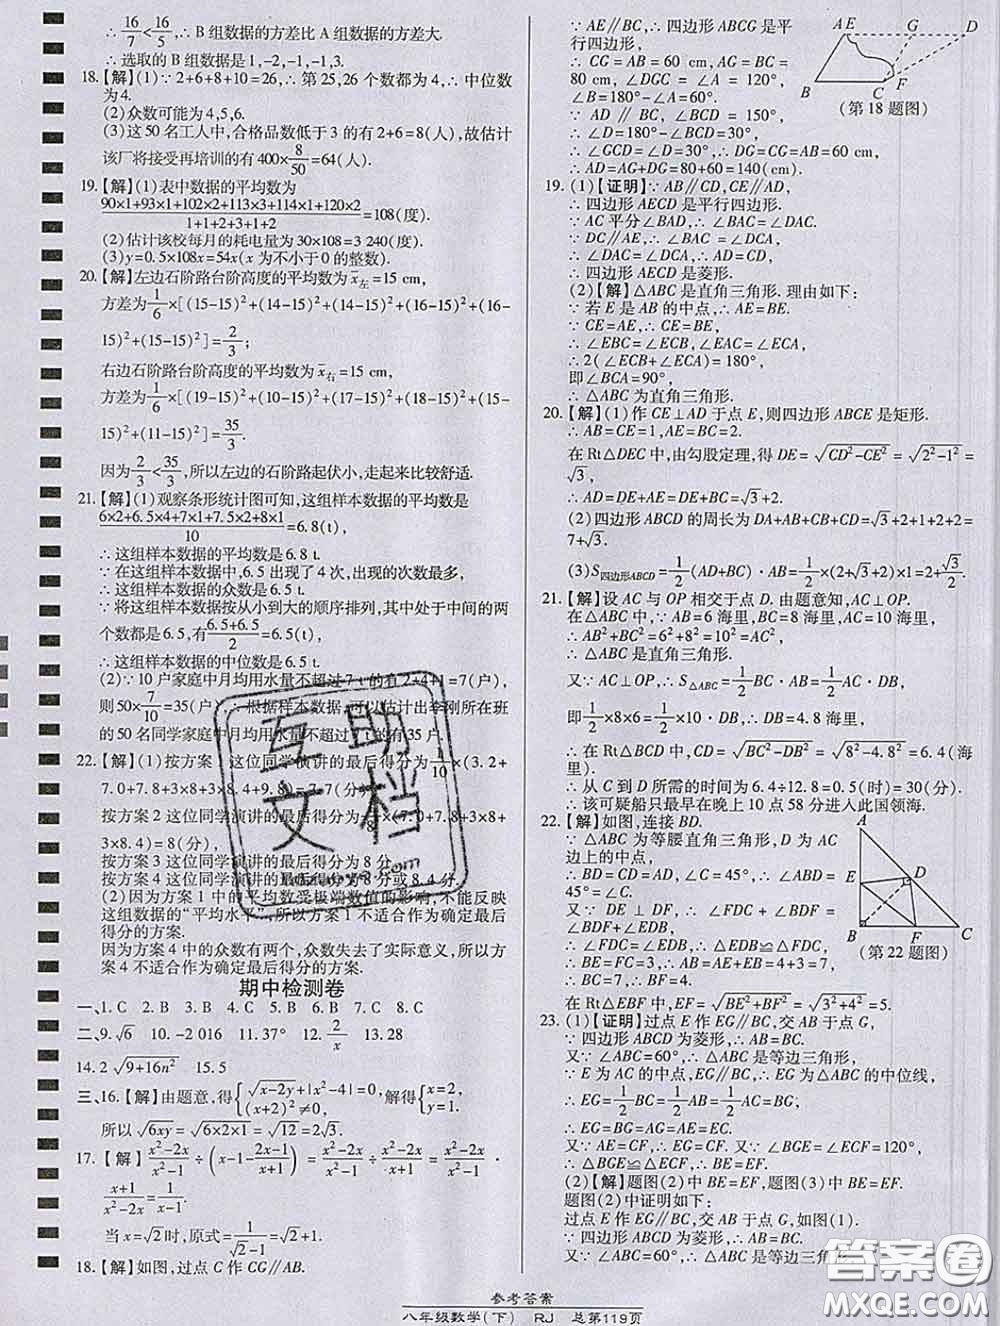 ∴ 16/7 < 16/5, ∴ B 组数据的方差比 A 组数据的方差大.
∴ 选取的 B 组数据是 1,-2,-1,-1,3.
18.【解】(1)∵ 2+6+8+10=26,∴ 第 25,26 个数都为 4,∴ 中位数
为 4.
(2)众数可能为 4,5,6.
(3)这 50 名工人中,合格品数低于 3 的有 2+6=8(人),故估计
该厂将接受再培训的有 400×8/50=64(人).
19.【解】(1)表中数据的平均数为
(90×1+93×1+102×2+113×3+114×1+120×2)/(1+1+2+3+1+2)=108(度).
(2)估计该校每月的耗电量为 30×108=3 240(度).
(3)y=0.5×108x=54x(x 为不小于 0 的整数).
20.【解】左边石阶路台阶高度的平均数为 x̄左=15 cm,
方差为 1/6×[(15-15)²+(14-15)²+(14-15)²+(16-15)²+(16-
15)²+(15-15)²]=2/3;
右边石阶路台阶高度的平均数为 x̄右=15 cm,
方差为 1/6×[(19-15)²+(10-15)²+(17-15)²+(18-15)²+(15-
15)²+(11-15)²]=35/3.
因为 2/3<35/3,所以左边的石阶路起伏小,走起来比较舒适.
21.【解】(1)观察条形统计图可知,这组样本数据的平均数是
(6×2+6.5×4+7×1+7.5×2+8×1)/10=6.8(t),
∴ 这组样本数据的平均数是 6.8 t.
∵ 在这组样本数据中,6.5 出现了 4 次,出现的次数最多,
∴ 这组样本数据的众数是 6.5 t.
∵ 将这组样本数据按从小到大的顺序排列,其中处于中间的两
个数都是 6.5,有(6.5+6.5)/2=6.5,
∴ 这组样本数据的中位数是 6.5 t.
(2)∵ 10 户家庭中月均用水量不超过 7 t 的有 2+4+1=7(户),
50×7/10=35(户),∴ 根据样本数据,可以估计出李刚所在班
的 50 名同学家庭中月均用水量不超过 7 t 的有 35 户.
22.【解】(1)按方案 1 这位同学演讲的最后得分为 1/10×(3.2+
7.0+7.8+3×8+3×8.4+9.8)=7.7(分).
按方案 2 这位同学演讲的最后得分为 1/8×(7.0+7.8+3×8+
3×8.4)=8(分),
按方案 3 这位同学演讲的最后得分为 8 分,
按方案 4 这位同学演讲的最后得分为 8 分或 8.4 分.
(2)因为方案 1 中的平均数受极端数值的影响,不能反映
这组数据的“平均水平”,所以方案 1 不适合作为确定最后
得分的方案.
因为方案 4 中的众数有两个,众数失去了实际意义,所以方
案 4 不适合作为确定最后得分的方案.
期中检测卷
一、1.C 2.B 3.B 4.B 5.C 6.B 7.C 8.C
二、9.√6 10.-2 016 11.37° 12.2/x 13.28
14.2√(9+16n²) 15.5
三、16.【解】由题意,得{√(x-2y)+|x²-4|=0, (x+2)²≠0, 解得{x=2, y=1.
所以 √(6xy)=√(6×2×1)=√12=2√3.
17.【解】(x²-2x)/(x²-1)÷(x-1-(2x-1)/(x+1))=(x²-2x)/(x²-1)÷(x²-2x)/(x+1)=(x²-2x)/(x²-1)·
(x+1)/(x²-2x)=1/(x-1).
当 x=√2时,原式=1/(√2-1)=√2+1.
18.【解】如图,过点 C 作 CG∥AB.
∵ AE∥BC,∴ 四边形 ABCG 是平
行四边形,
∴ CG=AB=60 cm,AG=BC=
80 cm,∠DGC=∠A=120°,
∠B=180°-∠A=60°.
∵ AD∥BC,∠BCD=150°,
∴ ∠D=180°-∠BCD=30°.
∴ ∠GCD=∠D=30°,∴ DG=CG=AB=60 cm,
∴ AD=AG+DG=80+60=140(cm).
A E G D
B C F
(第 18 题图)
19.(1)【证明】∵ AB∥CD,CE∥AD,
∴ 四边形 AECD 是平行四边形.
∵ AC 平分∠BAD,∴ ∠BAC=∠DAC.
∵ DC∥AE,∴ ∠BAC=∠DCA,
∴ ∠DAC=∠DCA,∴ AD=CD.
∴ 四边形 AECD 是菱形.
(2)【解】△ABC 是直角三角形. 理由如下:
∵ 若 E 是 AB 的中点,∴ AE=BE.
∵ CE=AE,∴ CE=BE,
∴ ∠EBC=∠ECB,∠EAC=∠ECA
∴ 2(∠ECB+∠ECA)=180°,
即∠BCA=90°,
∴ △ABC 为直角三角形.
20.【解】(1)作 CE⊥AD 于点 E,则四边形 ABCE 是矩形.
∴ AB=CE=1,AE=BC=2.
在 Rt△DEC 中,由勾股定理,得 DE=√(CD²-CE²)=√(2²-1²)=
√3,
∴ AD=DE+AE=√3+2.
(2)四边形 ABCD 的周长为 DA+AB+CB+CD=√3+2+1+2+2=
7+√3.
(3)S四边形ABCD=1/2(AD+BC)·AB=1/2×(2+√3+2)×1=2+√3/2.
21.【解】设 AC 与 OP 相交于点 D. 由题意知,AC⊥OP.
在△ABC 中,∵ AB=6 海里,BC=8 海里,AC=10 海里,
∴ AB²+BC²=6²+8²=10²=AC²,
∴ △ABC 是直角三角形.
又∵ AC⊥OP,∴ S△ABC=1/2BC·AB=1/2AC·BD,
即 1/2×8×6=1/2×10·BD,∴ BD=4.8 海里,
∴ 在 Rt△BCD 中,CD=√(BC²-DB²)=√(8²-4.8²)=6.4(海
里),
∴ 从 C 到 D 所需的时间为 6.4÷12.8=0.5(时)=30(分).
∴ 该可疑船只最早在晚上 10 点 58 分进入此国领海.
22.【解】如图,连接 BD.
∵ △ABC 为等腰直角三角形,D 为 AC
边上的中点,
∴ BD=CD=AD,∠ABD=∠DBC=
45°=∠C.
又∵ DE⊥DF,∴ ∠FDC+∠BDF=
∠EDB+∠BDF,∴ ∠FDC=
∠EDB,∴ △EDB≌△FDC,
∴ FC=BE=3,∴ AB=7,
∴ BC=7,∴ BF=4.
在 Rt△EBF 中,EF=√(BE²+BF²)=√(3²+4²)=5.
A
E D
B F C
(第 22 题图)
23.(1)【证明】过点 E 作 EG∥BC,交 AB 于点 G,
∵ 四边形 ABCD 为菱形,∴ AB=BC.
又∵ ∠ABC=60°,∴ △ABC 是等边三角形,
∵ E 为 AC 的中点,∴ EG 为△ABC 的中位线,
∴ EG=1/2BC=1/2AB=1/2AC,
∴ EG=BG=AG=AE=EC.
又∵ AE=CF,∴ EG=CF. 又∵ ∠BGE=∠ECF=120°,
∴ △BGE≌△ECF,∴ BE=EF.
(2)【解】题图(2)中 BE=EF,题图(3)中 BE=EF.
题图(2)中证明如下:
过点 E 作 EG∥BC,交 AB 于点 G,如图(1).
∵ 四边形 ABCD 为菱形,∴ AB=BC.
又∵ ∠ABC=60°,∴ △ABC 是等边三角形,
参考答案
八年级数学(下) RJ 总第119页
互助
文档
答案圈
MXQE.COM